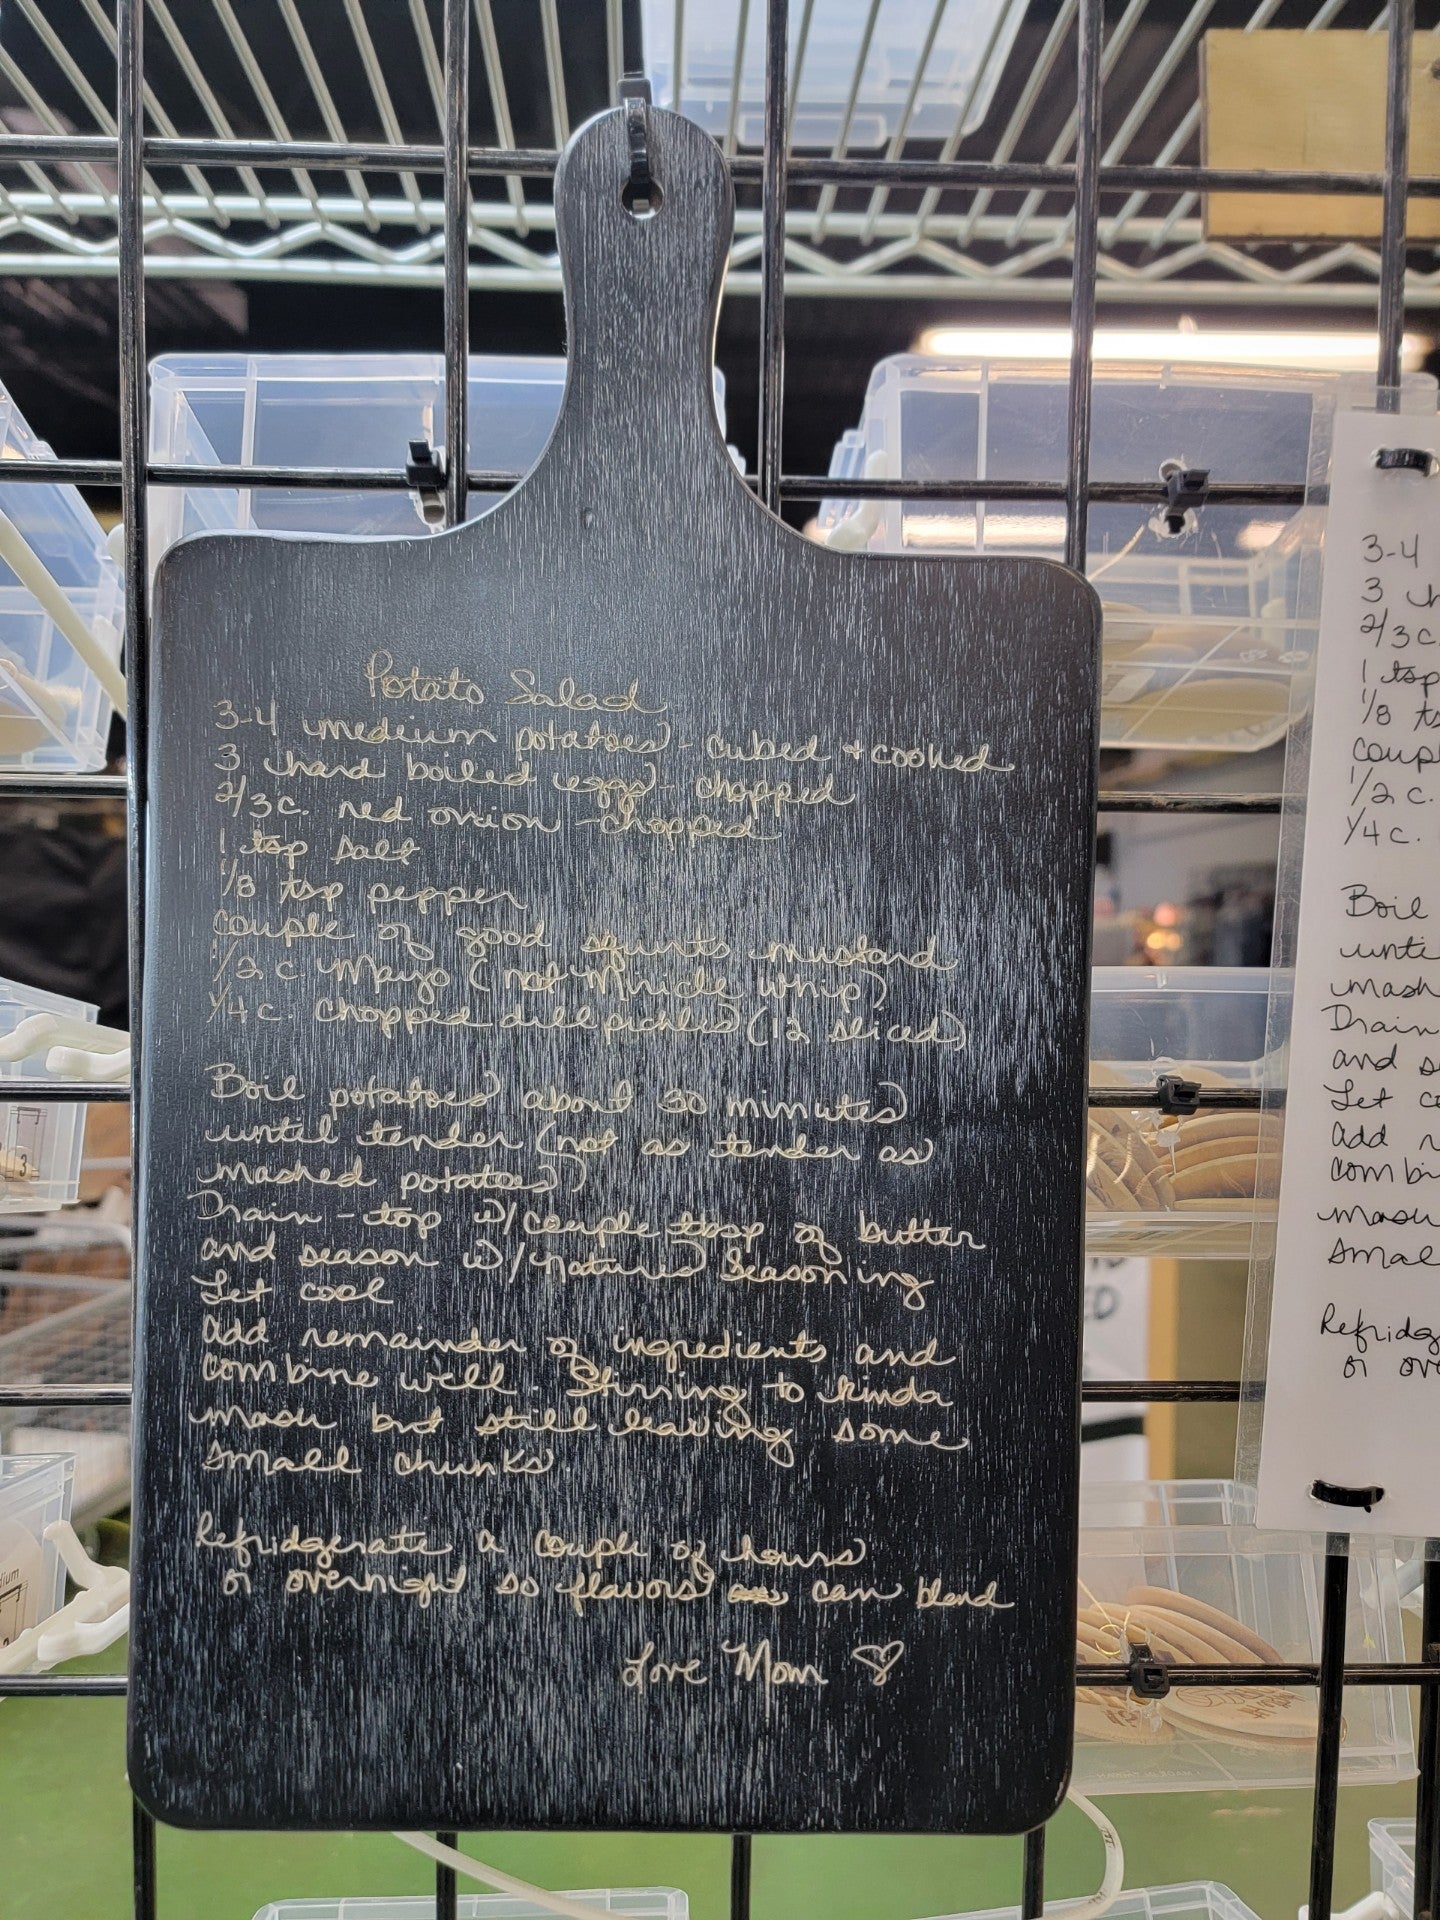 Potato Salad
3-4 medium potatoes - cubed + cooked
3 hard boiled eggs - chopped
2/3 c. red onion - chopped
1 tsp salt
1/8 tsp pepper
couple of good squirts mustard
1/2 c Mayo (not Miricle Whip)
1/4 c. chopped dill pickles (12 sliced)
Boil potatoes about 30 minutes
until tender (not as tender as
mashed potatoes)
Drain - top w/ couple tbsp of butter
and season w/ Natures Seasoning
Let cool
add remainder of ingredients and
combine well. Stirring to kinda
mash but still leaving some
small chunks
Refridgerate a couple of hours
or overnight so flavors can blend
Love Mom ♡
3-4
3
2/3 c.
1 tsp
1/8
coup
1/2 c.
1/4 c.
Boil
unti
mash
Drain
and s
Let c
add r
combi
mash
smal
Refridg
or ove